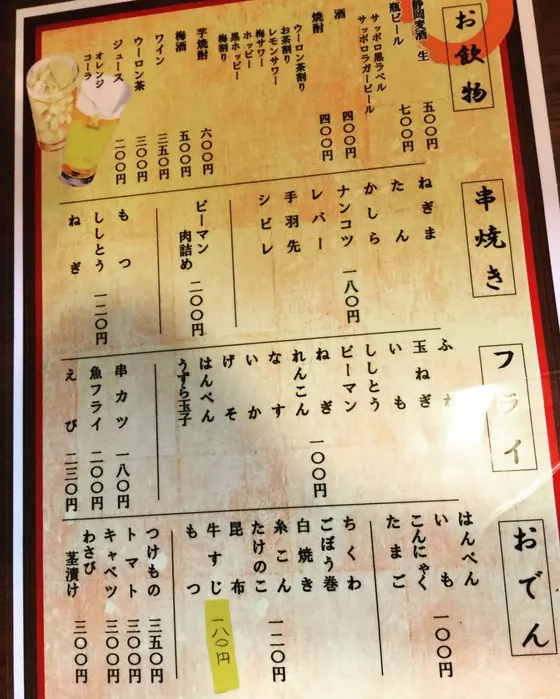 お飲物
静岡麦酒 生 五〇〇円
瓶ビール 七〇〇円
サッポロ黒ラベル
サッポロラガービール
酒 四〇〇円
焼酎 四〇〇円
ウーロン茶割り
お茶割り
レモンサワー
梅サワー
ホッピー
黒ホッピー
梅割り
芋焼酎 六〇〇円
梅酒 五〇〇円
ワイン 三五〇円
ウーロン茶 三〇〇円
ジュース 二〇〇円
オレンジ
コーラ
串焼き
ねぎま
たん
かしら
ナンコツ 一八〇円
レバー
手羽先
シビレ
ピーマン肉詰め 二〇〇円
もつ
ししとう 一二〇円
ねぎ
フライ
玉ねぎ
いも
ししとう
ピーマン
ねぎ 一〇〇円
れんこん
なす
いか
げそ
はんぺん
うずら玉子
串カツ 一八〇円
魚フライ 二〇〇円
えび 二三〇円
おでん
はんぺん
いも 一〇〇円
こんにゃく
たまご
ちくわ
ごぼう巻
白焼き
糸こん 一二〇円
たけのこ
昆布
牛すじ 一八〇円
もつ
つけもの 三五〇円
トマト 三〇〇円
キャベツ 三〇〇円
わさび茎漬け 三〇〇円